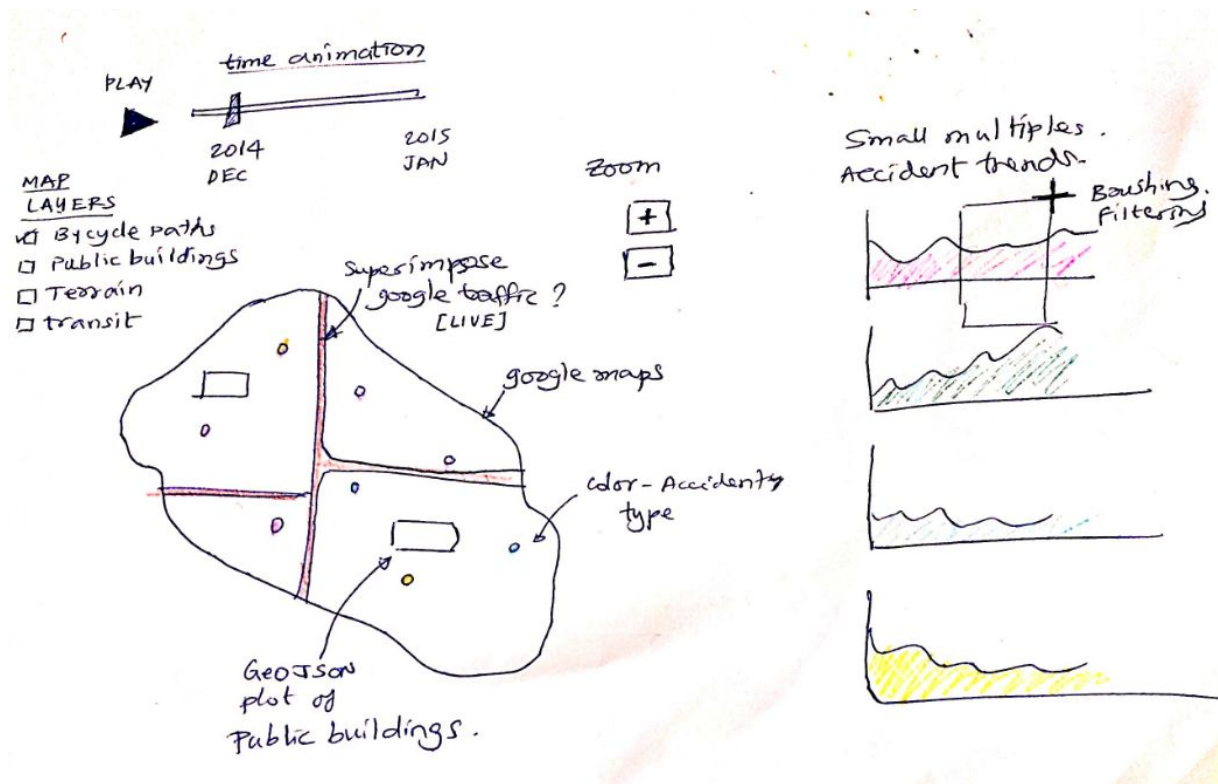 time animation
PLAY
2014
DEC
2015
JAN
MAP
LAYERS
Bycycle paths
Public buildings
Terrain
transit
Zoom
+
-
Superimpose
google traffic ?
[LIVE]
google maps
Color - Accidenty
type
GeoJSON
plot of
Public buildings.
Small multiples.
Accident trends.
Brushing.
Filtering